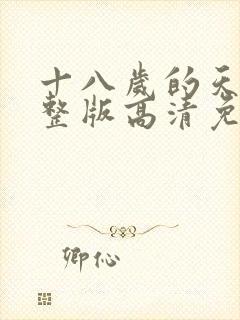 十八歲的天
整版高清免
卿伈